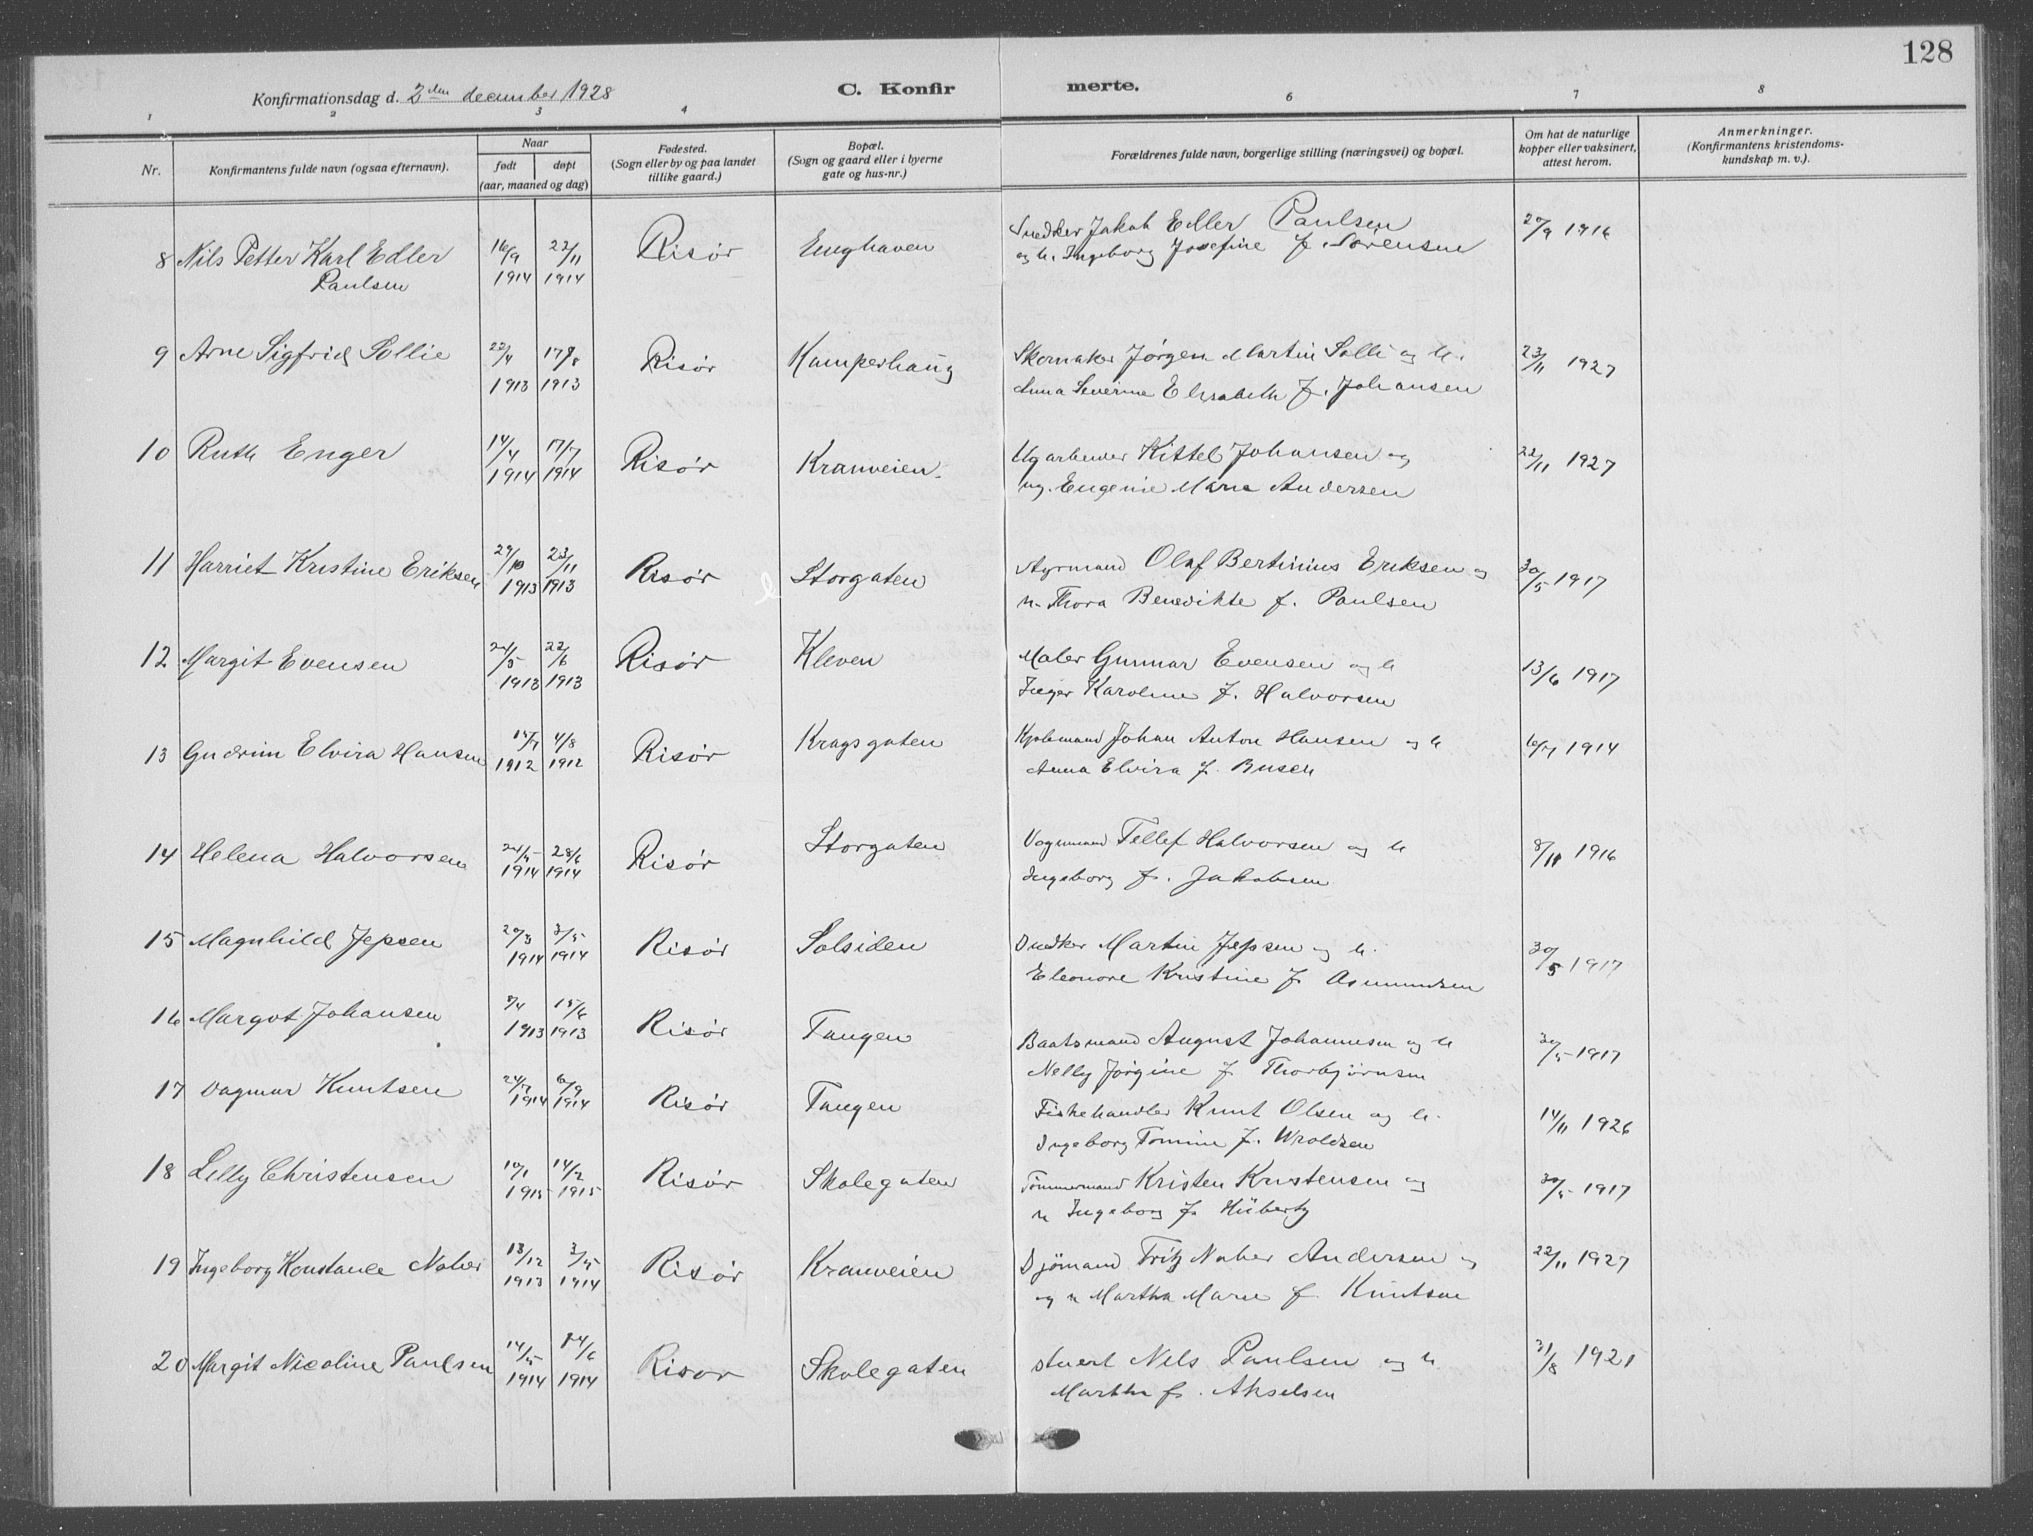 128
Konfirmationsdag d. 2den december 1928
C. Konfir merte.
1 2 3 4 6 7 8
Nr.
Konfirmantens fulde navn (ogsaa efternavn).
Naar
født døpt
(aar, maaned og dag)
Fødested.
(Sogn eller by og paa landet
tillike gaard.)
Bopæl.
(Sogn og gaard eller i byerne
gate og hus-nr.)
Forældrenes fulde navn, borgerlige stilling (næringsvei) og bopæl.
Om hat de naturlige
kopper eller vaksinert,
attest herom.
Anmerkninger.
(Konfirmantens kristendoms-
kundskap m. v.).
8 Nils Petter Karl Edler 16/9 22/11 Risør Enghaven Snedker Jakob Edler Paulsen 20/9 1916
Paulsen 1914 1914 og h. Ingeborg Josefine f. Sørensen
9 Arne Sigfrid Sollie 22/4 17/8 Risør Kamperhaug Skomaker Jørgen Martin Solli og h. 23/11 1927
1913 1913 Anna Severine Elisabeth f. Johansen
10 Ruth Enger 14/4 17/7 Risør Kranveien. Kittel Johansen og 22/11 1927
1914 1914 ug. Eugenie Marie Andersen
11 Harriet Kristine Eriksen 29/10 23/11 Risør Storgaten Olaf Bertinius Eriksen og 30/5 1917
1913 1913 h. Thora Benedikte f. Paulsen
12 Margit Evensen 24/5 22/6 Risør Kleven Maler Gunnar Evensen og h 13/6 1917
1913 1913 Inger Karoline f. Halvorsen
13 Gudrun Elvira Hansen 4/8 Risør Kragsgaten Johan Anton Hansen og h 1914
1912 1912 Anna Elvira f. Busch
14 Helena Halvorsen 28/6 Risør Storgaten Vognmand Tellef Halvorsen og h 8/11 1916
1914 1914 Ingeborg f. Jakobsen
15 Magnhild Jepsen 20/3 3/5 Risør Solsiden Snedker Martin Jepsen og h. 30/5 1917
1914 1914 Eleonore Kristine f. Asmundsen
16 Margot Johansen 8/4 15/6 Risør Tangen Baatsmand August Johannesen og h 30/5 1917
1913 1913 Nelly Jørgine f. Thorbjørnsen
17 Dagmar Knutsen 24/7 6/9 Risør Tangen Fiskehandler Knut Olsen og h. 14/11 1926
1914 1914 Ingeborg Tomine f. Wroldsen
18 Lilly Christensen 10/1 14/2 Risør Skolegaten Tømmermand Kristen Kristensen og 30/5 1917
1915 1915 h Ingeborg f. Hüberty
19 Ingeborg Konstance Naher 13/12 3/5 Risør Kranveien Sjømand Fritz Naher Andersen og 22/11 1927
1913 1914 og h Martha Marie f. Knutsen
20 Margit Nicoline Paulsen 14/5 14/6 Risør Skolegaten stuert Nils Paulsen og h. 31/8 1921
1914 1914 Martha f. Akselsen